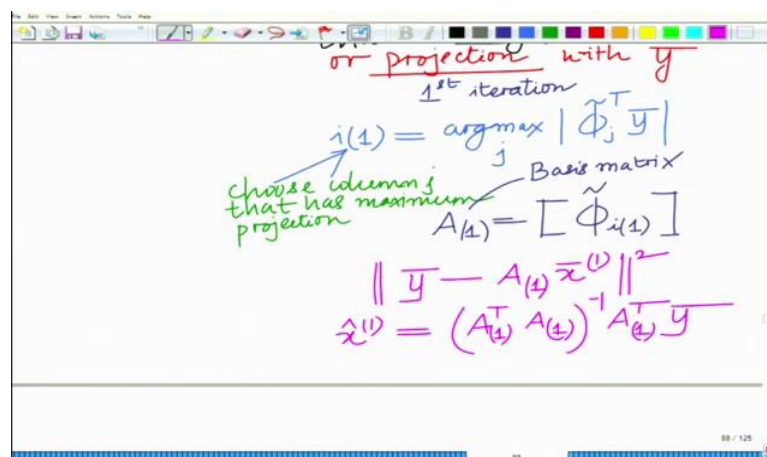 File Edit View Insert Actions Tools Help
or projection with y̅
1st iteration
i(1) = argmax_j | Φ̃_j^T y̅ |
choose column j
that has maximum
projection
Basis matrix
A_(1) = [ Φ̃_i(1) ]
‖ y̅ − A_(1) x̅^(1) ‖²
x̂^(1) = (A_(1)^T A_(1))^-1 A_(1)^T y̅
88 / 125